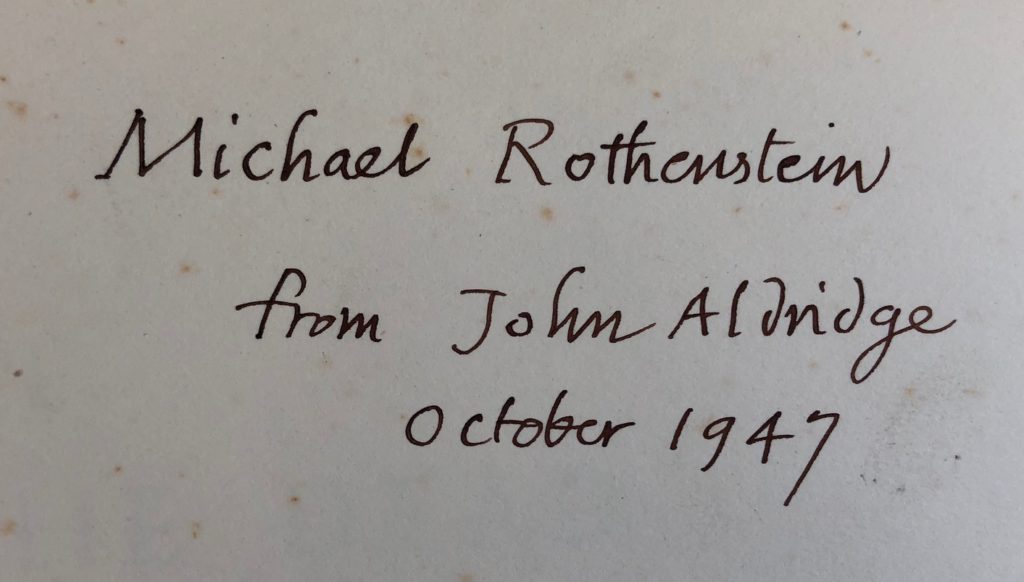 Michael Rothenstein
from John Aldridge
October 1947